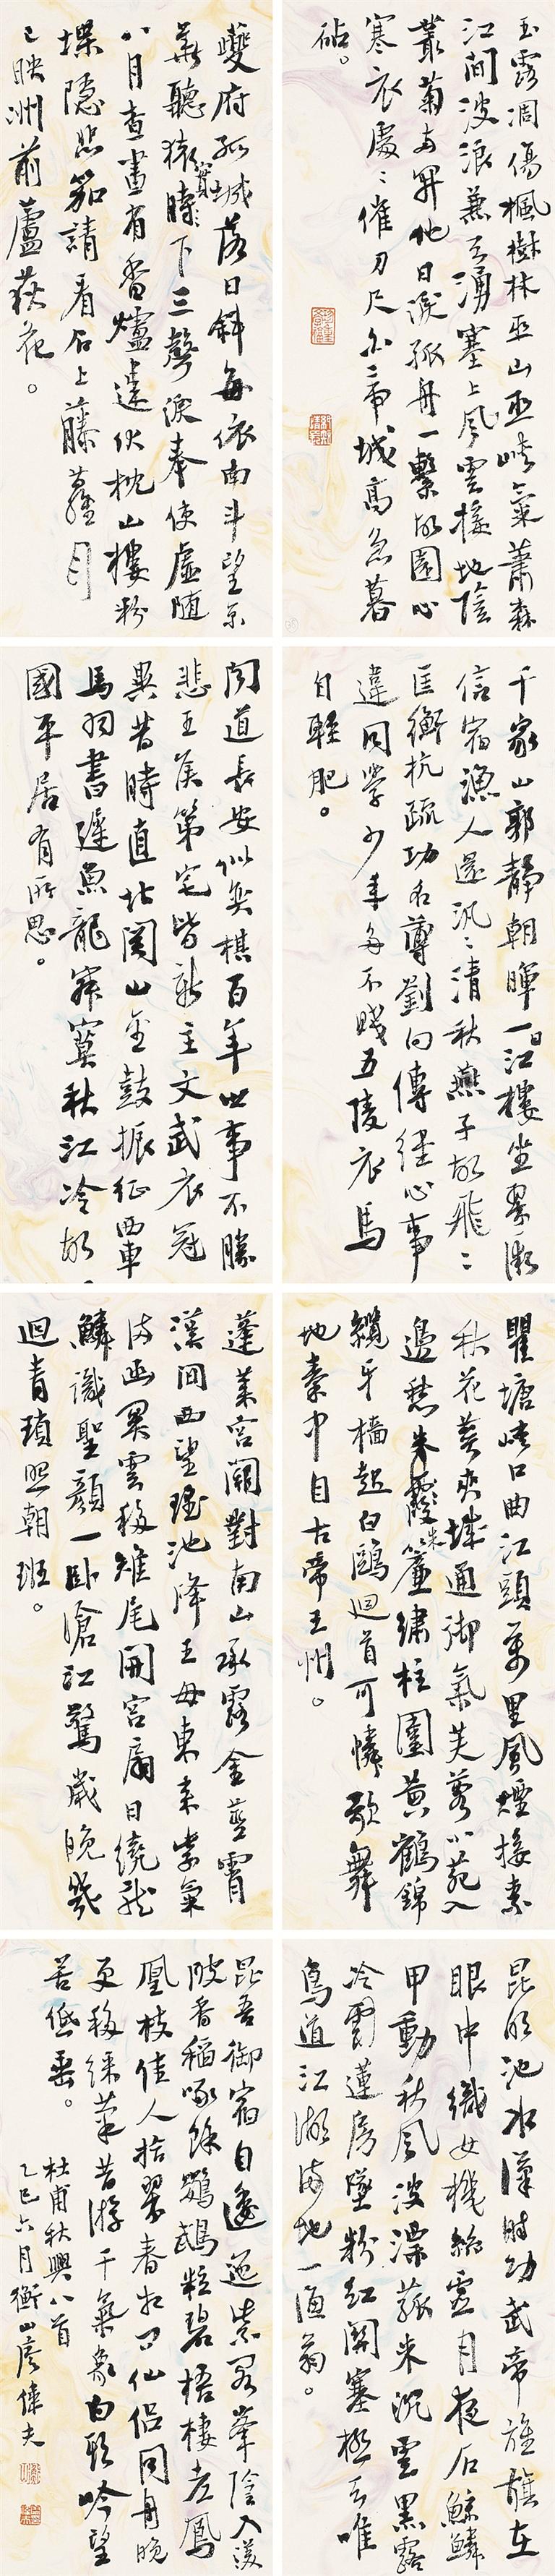 玉露凋傷楓樹林巫山巫峽氣蕭森
江間波浪兼天湧塞上風雲接地陰
叢菊兩開他日淚孤舟一繫故園心
寒衣處〻催刀尺白帝城高急暮
砧。
夔府孤城落日斜每依南斗望京
華聽猿實下三聲淚奉使虛隨
八月查畫省香爐違伏枕山樓粉
堞隱悲笳請看石上藤蘿月
已映洲前蘆荻花。
千家山郭靜朝暉一日江樓坐翠微
信宿漁人還汎〻清秋燕子故飛〻
匡衡抗疏功名薄劉向傳經心事
違同學少年多不賤五陵衣馬
自輕肥。
聞道長安似奕棋百年世事不勝
悲王侯第宅皆新主文武衣冠
異昔時直北關山金鼓振征西車
馬羽書遲魚龍寂寞秋江冷故
國平居有所思。
瞿塘峽口曲江頭萬里風煙接素
秋花萼夾城通御氣芙蓉小苑入
邊愁珠簾繡柱圍黃鶴錦
纜牙檣起白鷗迴首可憐歌舞
地秦中自古帝王州。
蓬萊宮闕對南山承露金莖霄
漢間西望瑤池降王母東來紫氣
滿函關雲移雉尾開宮扇日繞龍
鱗識聖顏一臥滄江驚歲晚幾
迴青瑣照朝班。
昆明池水漢時功武帝旌旗在
眼中織女機絲虛月夜石鯨鱗
甲動秋風波漂菰米沉雲黑露
冷蓮房墜粉紅關塞極天唯
鳥道江湖滿地一漁翁。
昆吾御宿自逶迤紫閣峰陰入渼
陂香稻啄餘鸚鵡粒碧梧棲老鳳
凰枝佳人拾翠春相問仙侶同舟晚
更移綵筆昔游干氣象白頭吟望
苦低垂。
杜甫秋興八首
乙巳六月衡山彥偉夫